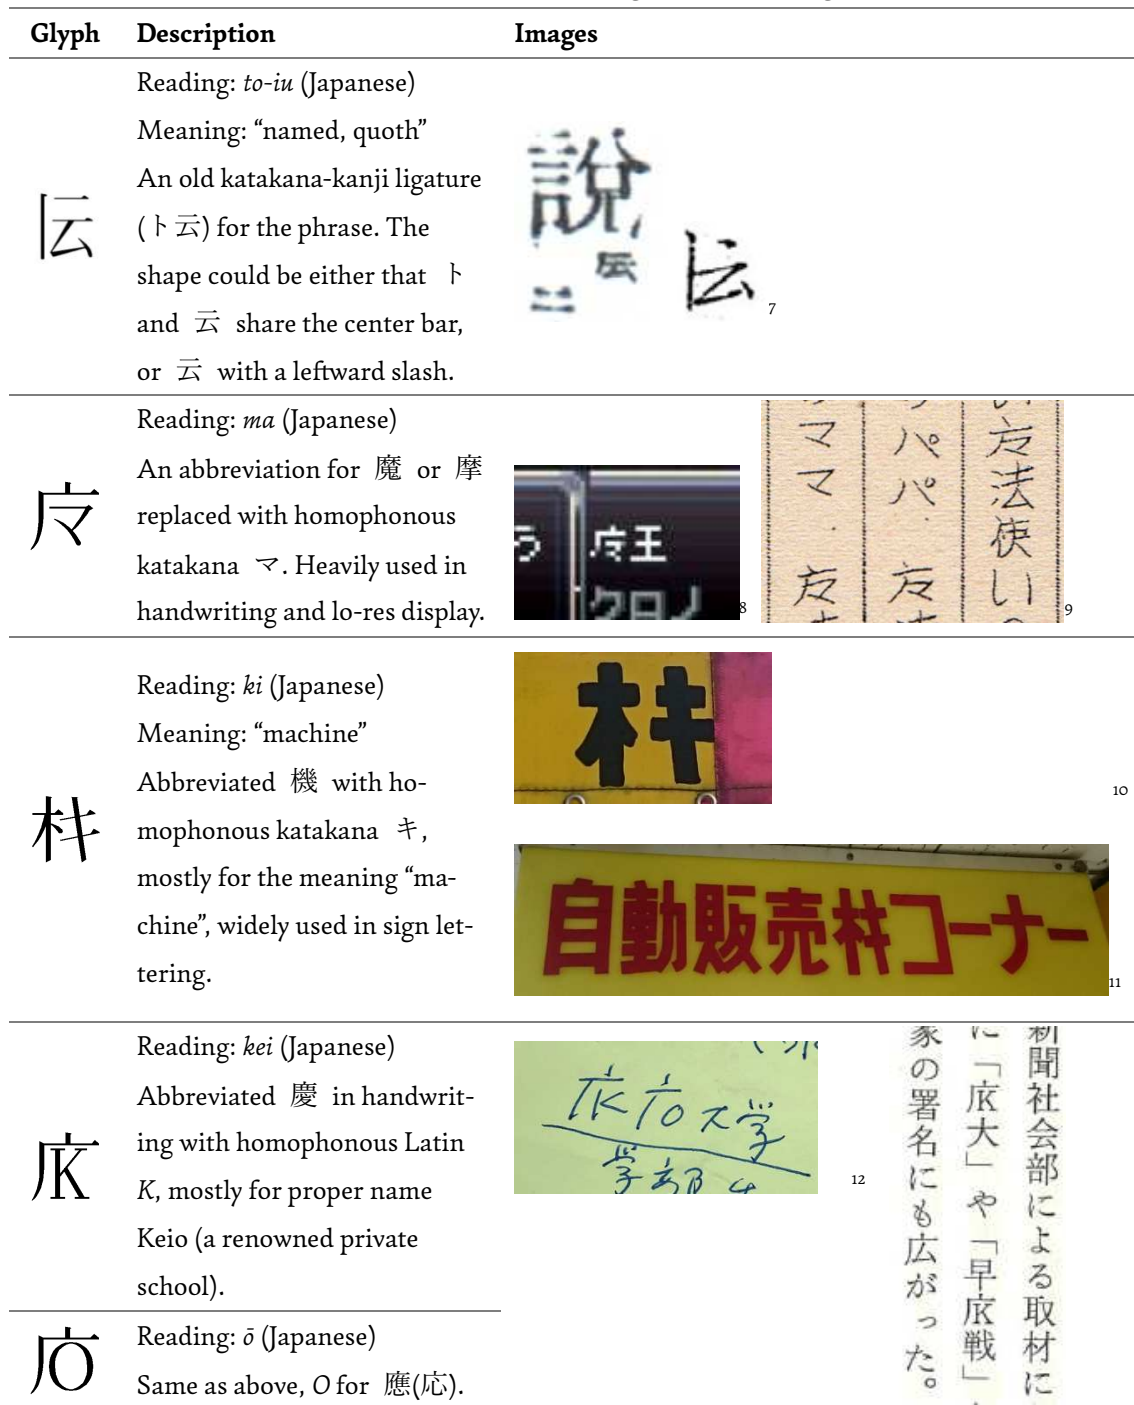 Glyph Description Images
Reading: to-iu (Japanese)
Meaning: “named, quoth”
An old katakana-kanji ligature
(ト云) for the phrase. The
shape could be either that ト
and 云 share the center bar,
or 云 with a leftward slash.
説
二
7
Reading: ma (Japanese)
An abbreviation for 魔 or 摩
replaced with homophonous
katakana マ. Heavily used in
handwriting and lo-res display.
う
王
クロノ
8
い 法使い
パパ
ママ
9
Reading: ki (Japanese)
Meaning: “machine”
Abbreviated 機 with ho-
mophonous katakana キ,
mostly for the meaning “ma-
chine”, widely used in sign let-
tering.
10
自動販売 コーナー
11
Reading: kei (Japanese)
Abbreviated 慶 in handwrit-
ing with homophonous Latin
K, mostly for proper name
Keio (a renowned private
school).
大学
学部生
12
新聞社会部による取材に
に「 大」や「早 戦」
家の署名にも広がった。
Reading: ō (Japanese)
Same as above, O for 應(応).